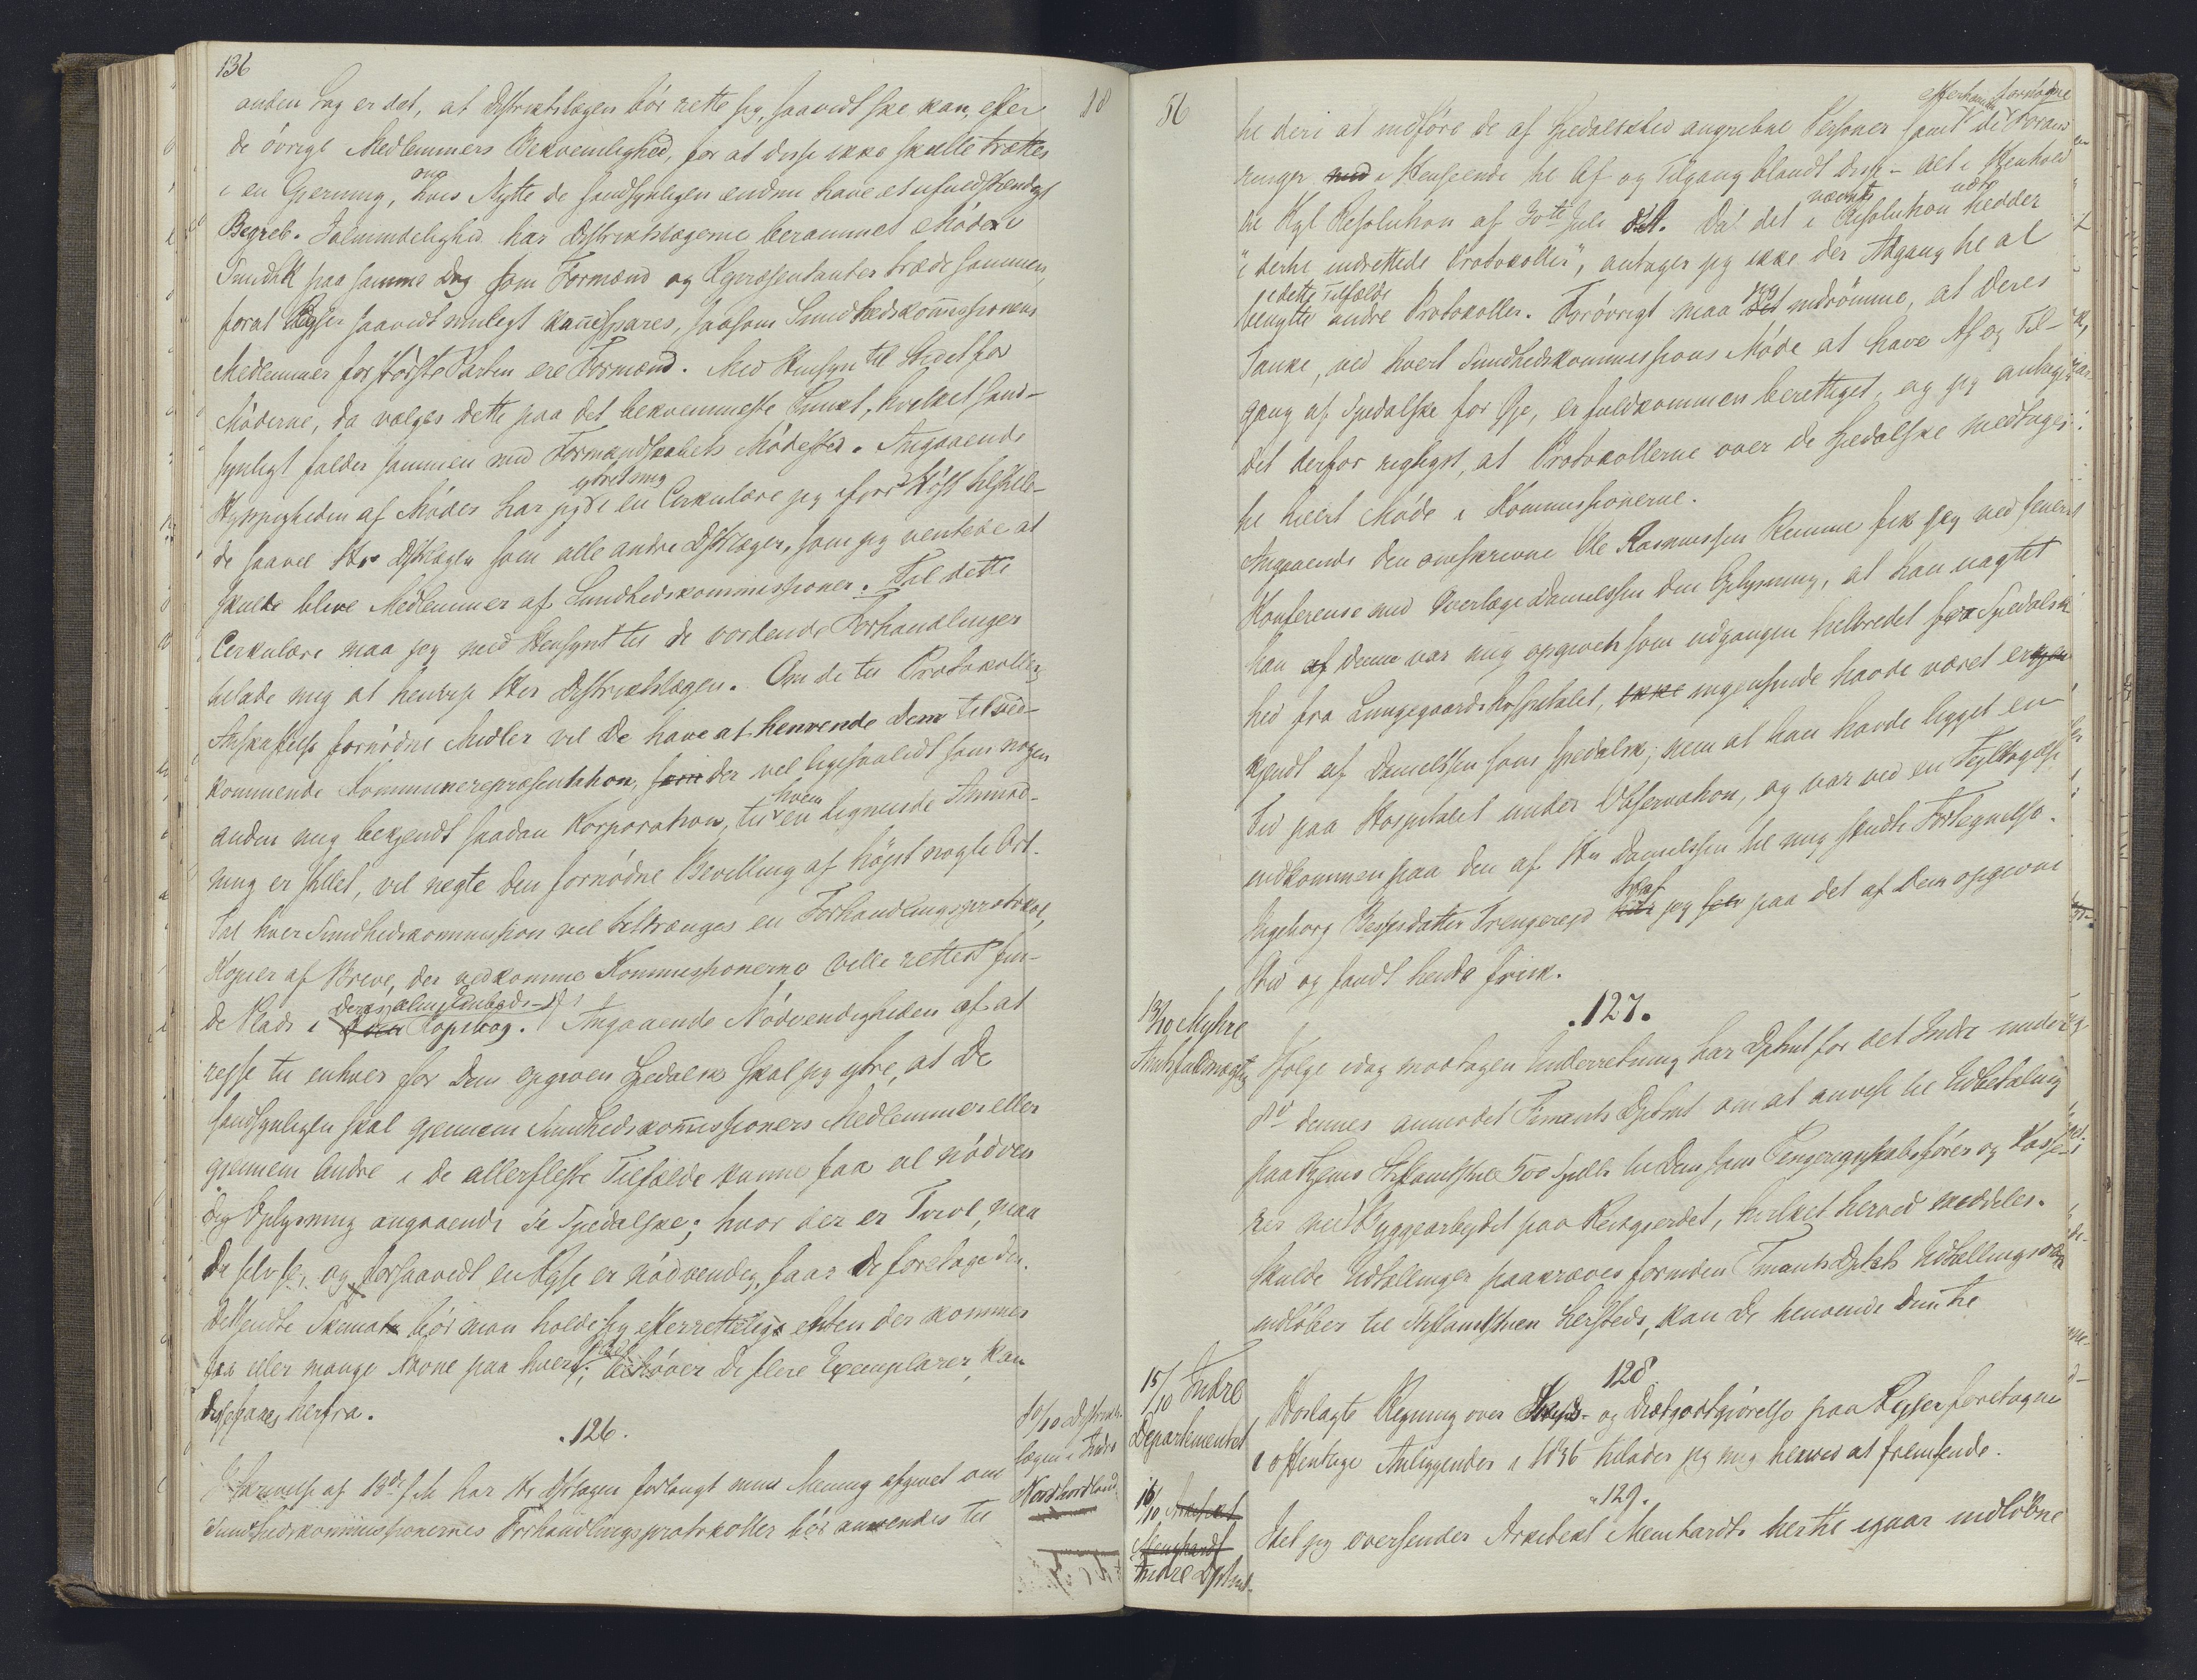 136
anden Sag er det, at Distriktslægen bör rette sig, saavidt ske kan, efter
de övrige Medlemmers Bekvemlighed, for at disse ikke skulle trættes
i en Gjerning, om hvis Nytte de sandsynligen endnu have et ufuldstændigt
Begreb. I Almindelighed har Distriktslægerne berammet Møder i
SundhK paa samme Dag som Formænd og Repræsentanter træde sammen,
forat Rejser saavidt muligt kan spares, saasom Sundhedskommissionens
Medlemmer for störste Parten ere Formænd. Med Hensyn til Stedet for
Möderne, da vælges dette paa det bekvemmeste Punkt, hvilket sand-
synligt falder sammen med Formandskabets Mödested. Angaaende
Hyppigheden af Möder har jeg ytret mig i en Cirkulære jeg ifjor Höst tilstille-
de saavel Hr Dstlægen som alle andre Dstlæger, som jeg ventede at
skulle blive Medlemmer af Sundhedskommissioner. Til dette
Cirkulære maa jeg med Hensyn til de vordende Forhandlinger
tillade mig at henvise Hr Distriktslægen. Om de til Protokollers
Anskaffelse fornödne Midler vil De have at henvende Dem til ved-
kommende Kommunerepræsentation, der vel ligesaalidt som nogen
anden mig bekjendt saadan Korporation, til hvem en lignende Anmod-
ning er stillet, vil negte den fornödne Bevilling af höjst nogle Ort.
Til hver Sundhedskommission vil tiltrænges en Forhandlingsprotokol,
Kopier af Breve, der vedkomme Kommissionerne ville rettest fin-
de Plads i Deres alm. Embeds- Kopibog. Angaaende Nödvendigheden af at
rejse til enhver for Dem opgiven Spedalsk skal jeg ytre, at De
sandsynligen skal gjennem Sundhedskommissioners Medlemmer eller
gjennem Andre i de allerfleste Tilfælde kunne faa al nödven
dig Oplysning angaaende de Spedalske; hvor der er Tvivl, maa
De selv se, og forsaavidt en Rejse er nödvendig, faar De foretage den.
Det sendte Skema bör man holde sig efterrettelig enten der kommer
faa eller mange Navne paa hvert; behöver De flere Exemplarer, kan
disse faaes herfra.
.126.
10/10 Distrikts-
lægen i Indre
Nordhordland
I Skrivelse af 13de f. M. har Hr Dstlægen forlangt min Mening afgivet om
Sundhedskommissionernes Forhandlingsprotokoller bör anvendes til
18
56
efterhaanden fornødne
til deri at indföre de af Spedalskhed angrebne Personer samt de Foran
ringer i Henseende til Af og Tilgang blandt disse - alt i Henhold
til Kgl Resolution af 30te Juli d.A. Da det i nævnte Resolution udtr. hedder
"i dertil indrettede Protokoller", antager jeg ikke der Adgang til at
benytte i dette Tilfælde andre Protokoller. Forövrigt maa jeg indrömme, at Deres
Tanke, ved hvert Sundhedskommissions Möde at have Af og Til-
gang af Spedalske for Øje, er fuldkommen berettiget, og jeg antager
det derfor rigtigst, at Protokollerne over de Spedalske medtages
til hvert Möde i Kommissionerne.
Angaaende den omskrevne Ole Rasmussen Remme fik jeg ved seneste
Konference med Overlæge Danielssen den Oplysning, at han uagtet
han af denne var mig opgivet som udgangen helbredet fra Spedalsk
hed fra Lungegaards Hospitalet, ikke ingensinde havde været erkjen
kjendt af Danielssen som spedalsk; men at han havde ligget en
Tid paa Hospitalet under Observation, og var ved en Fejltagelse
indkommen paa den af Hr Danielssen til mig sendte Fortegnelse.
Ingeborg Bessesdatter Trengereid traf jeg paa det af Dem opgivne
Sted og fandt hende frisk.
.127.
13/10 Myhre
Amtsfuldmægtig
Ifølge idag modtagen Underretning har Dptmt for det Indre under
8de dennes anmodet Finants Dptmt om at anvise til Udbetaling
paa Hjems Stiftamtstue 500 Spdlr til Dem som Pengeregnskabsförer og Kasse-
rer ved Byggearbejdet paa Reitgjerdet, hvilket herved meddeles.
Skulde Udtællinger paakræves forinden Finants Dptets Udtællingsordre
indlöber til Stiftamtstuen hersteds, kan De henvende Dem til
128
15/10 Indre
Departementet
Vedlagte Regning over Skyds- og Diætgodtgjörelse paa Rejser foretagne
i offentlige Anliggender i 1856 tillader jeg mig herved at fremsende.
.129.
16/10 Arkitekt
Meinhardt
Indre Dptmt.
Idet jeg oversender Arkitekt Meinhardts hertil igaar indlöbne